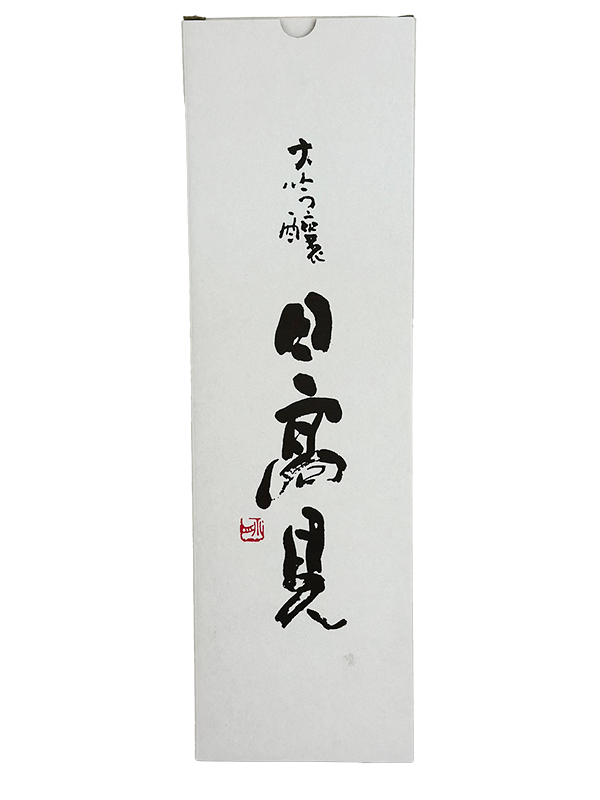 大吟醸
日高見